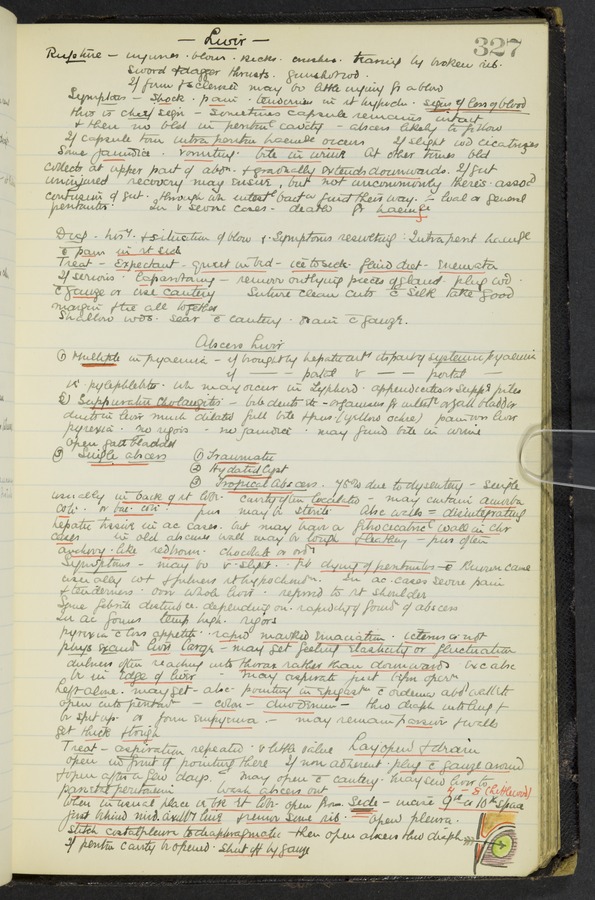 — Liver — 327
Rupture — injuries · blows · kicks · crushes · tearing by broken rib ·
sword & dagger thrusts · gunshot wd ·
If firm & sclerosed may be little injury fr a blow
Symptoms — Shock · pain · tenderness in rt hypoch · signs of loss of blood
this is chief sign — Sometimes capsule remains intact
& then no bld in peritonl cavity — abscess likely to follow
If capsule torn intra peritonl haemge occurs If slight wd cicatrizes
Some jaundice · vomiting · bile in urine At other times bld
collects at upper part of abdn · & gradually extends downwards · If gut
uninjured recovery may ensue, but not uncommonly there is assocd
contusion of gut · through wh intestl bacta find their way · — local or general
peritonitis · In v severe cases — death fr haemge
Diag — histy · & situation of blow & · Symptoms resulting : Intraperit haemge
c pain in rt side
Treat — Expectant — quiet in bd — ice to suck · fluid diet — enemata
If serious · laparotomy — remove outlying pieces of gland · plug wd ·
c gauze or use cautery Suture clean cuts c silk take good
margin & tie all together
Shallow wds · sear c cautery · drain c gauze ·
Abscess Liver
① Multiple in pyaemia — if brought by hepatic art is part of systemic pyaemia
if — — portal v — — portal —
v · pylephlebitis · wh may occur in Typhoid · appendicitis or suppg piles
② Suppurative Cholangitis · — bile ducts
ducts in liver much dilated full bile & pus (yellow ochre) pain over liver
pyrexia · no rigors · no jaundice · may find bile in urine
open gall bladder
③ Single abscess ① Traumatic
② Hydatid Cyst
③ Tropical Abscess · 75% due to dysentery — single
usually in back of rt lobe · cavity often loculated — may contain amoeba
coli · or bac coli · pus may be sterile · Absc walls = disintegrating
hepatic tissue in ac cases · but may have a fibrocicatricl wall in chr
cases In old abscess wall may be tough & leathery — pus often
anchovy-like red brown · chocolate or ord
Symptoms — may be v slight · Pt dying of peritonitis c known cause
usually wt & fulness rt hypochondm · In ac cases severe pain
& tenderness · over whole liver · referred to rt shoulder
Some febrile disturbce depending on · rapidity of formn of abscess
In ac forms temp high · rigors
pyrexia c loss appetite · rapid marked emaciation · icterus or not
phys exam liver large — may get feeling elasticity or fluctuation
dulness often reaching into thorax rather than downwards bec absc
be in edge of liver · — may aspirate just bef open
Left alone · may get — absc · pointing in epigastm c oedema abdl wall &
open into peritonm — colon — duodenum — thro diaph into lung &
be spit up · or form empyema · — may remain passive & walls
get thick & tough
Treat — aspiration repeated · v little value Lay open & drain
open in front if pointing there If non adherent plug c gauze around
& open after a few days · c may open c cautery · may sew liver to
parietal peritoneum wash abscess out
When in usual place in the rt lobe open from side — incise 9th or 10th space
just behind mid axill line & remove some rib · — open pleura ·
Stitch costal pleura to diaphragmatic — then open abscess thro diaph
If peritonl cavity is opened · shut off by gauze